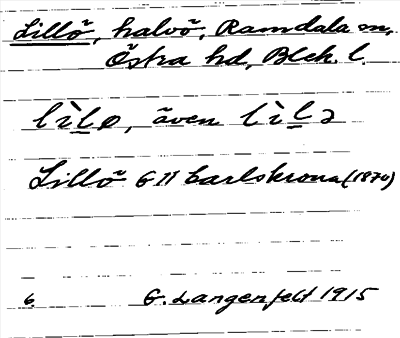 Lillö, halvö, Ramdala sn,
Östra hd, Blek. l.
lìlø, även lìlɔ
Lillö G 11 Carlskrona (1870)
6 G. Langenfelt 1915